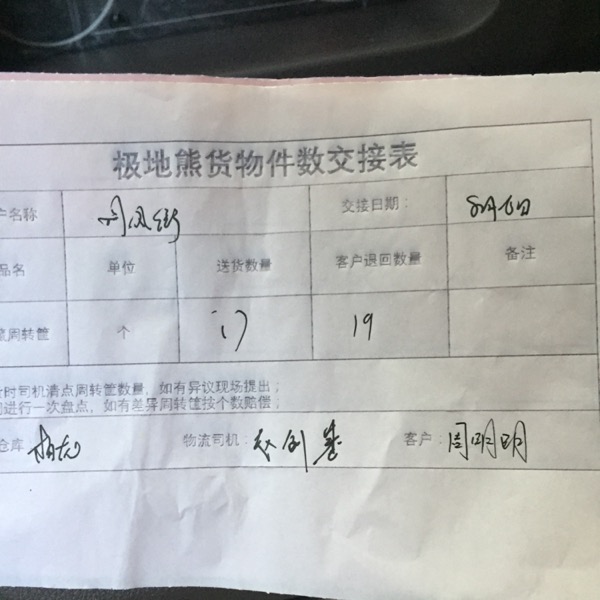 极地熊货物件数交接表
户名称 交接日期：
品名 单位 送货数量 客户退回数量 备注
周转筐 个 17 19
时司机清点周转筐数量，如有异议现场提出；
进行一次盘点，如有差异周转筐按个数赔偿；
仓库 物流司机： 客户：周明明